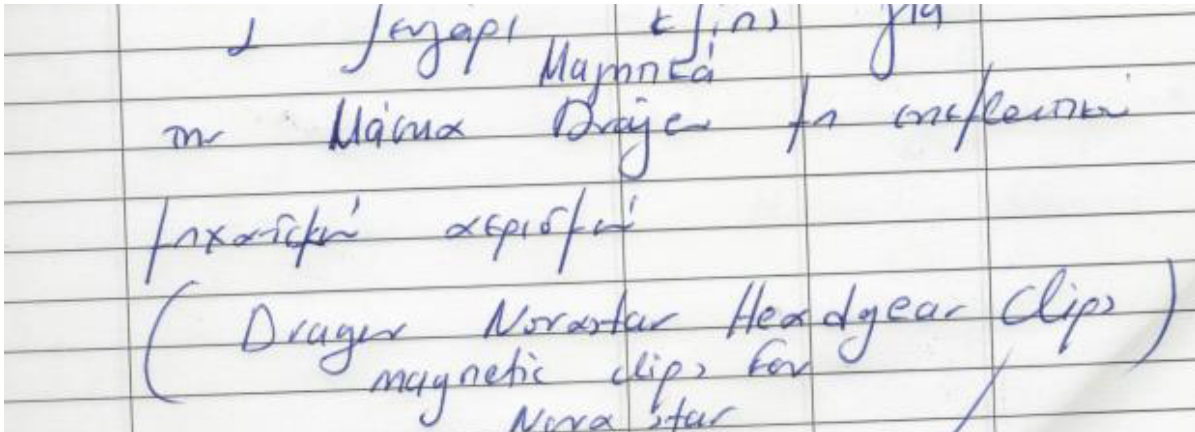 1 ζευγάρι κλιπς για
Μαγνητικά
τη Μάσκα Dräger μη επεμβατικού
μηχανικού αερισμού
(Drager Novastar Headgear Clips)
magnetic clips for
Nova star